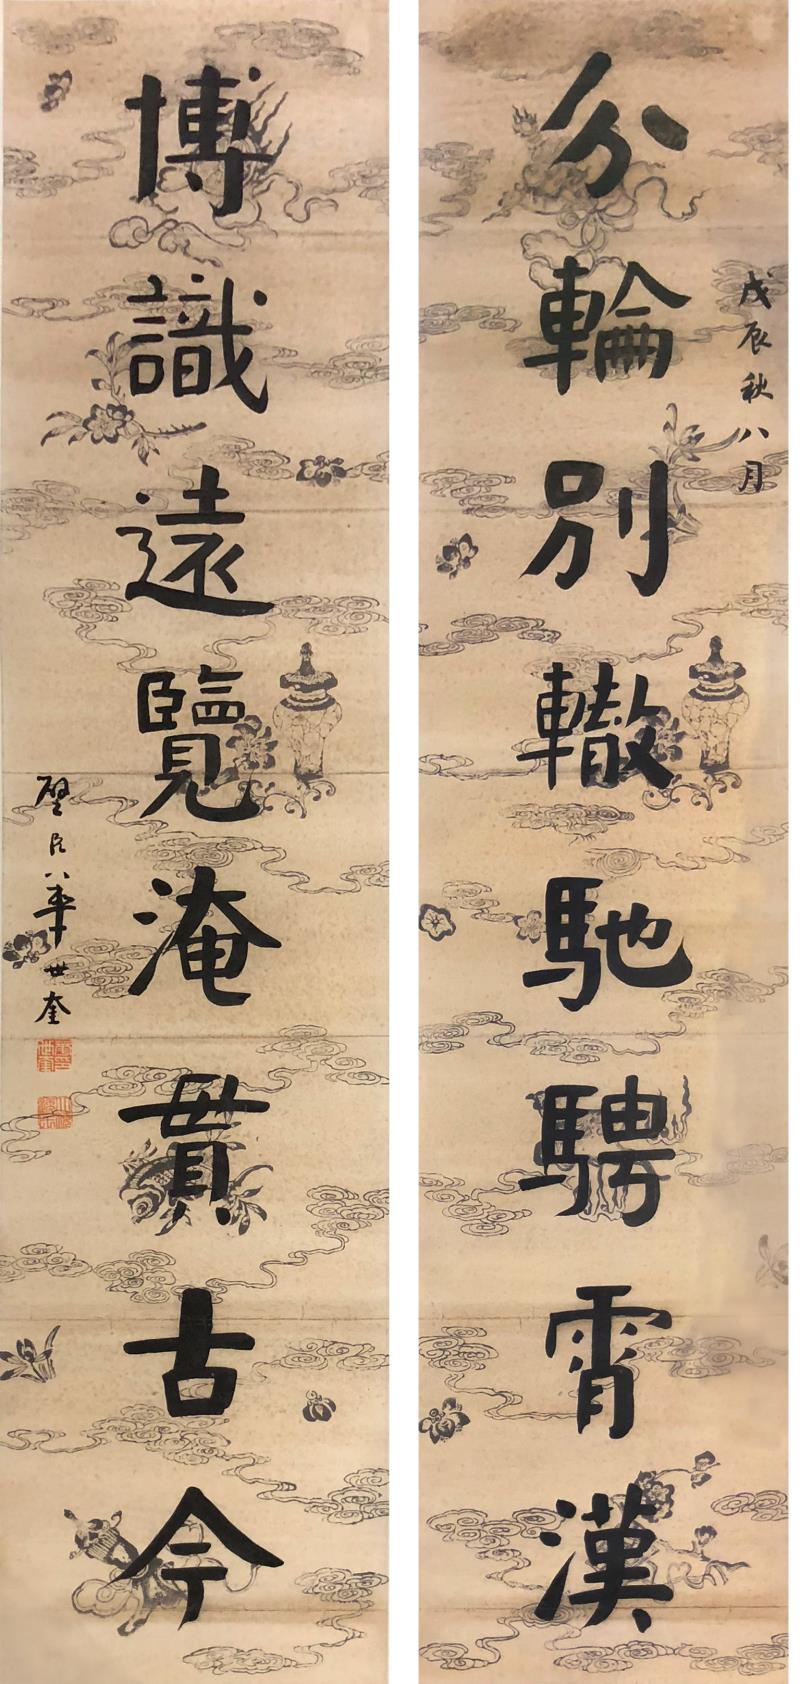 戊辰秋八月
分輪別轍馳騁霄漢
博識遠覽淹貫古今
璧臣華世奎